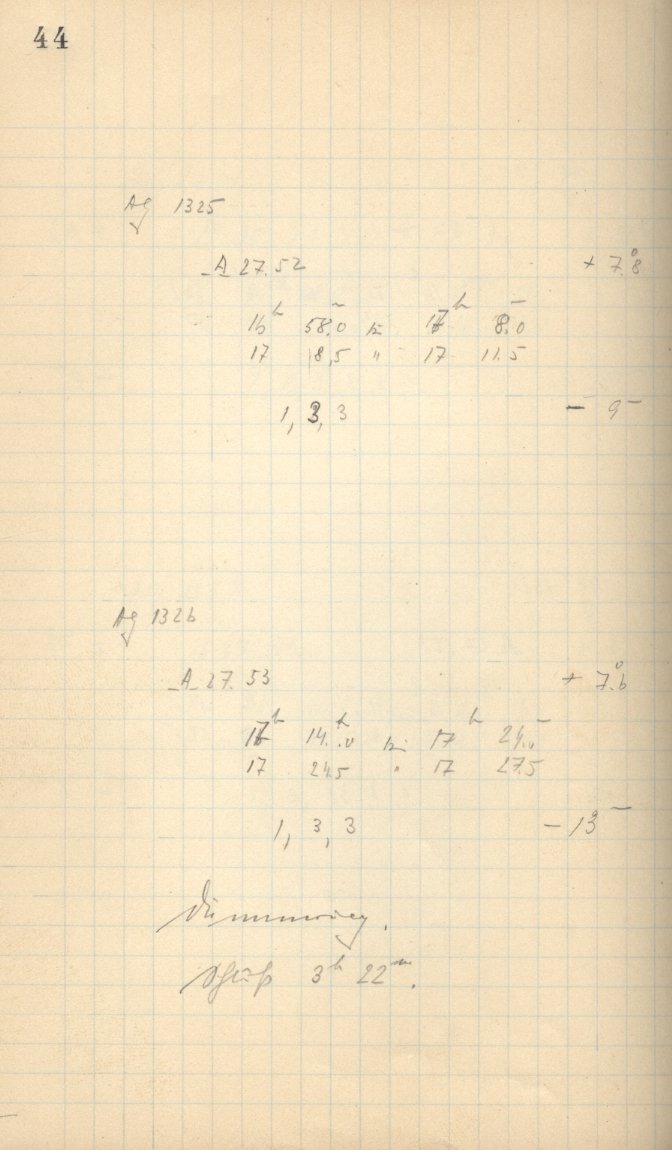 44
Ag 1325
A 27.52 + 7.°8
16ʰ 58.0 bis 17ʰ 8.0
17 8,5 " 17 11.5
1, 3, 3 - 9ᵐ
Ag 1326
A 27.53 + 7.°6
17ʰ 14.0 bis 17ʰ 24.0
17 24.5 " 17 27.5
1, 3, 3 - 13ᵐ
Dämmerung.
Schluß 3ʰ 22ᵐ.